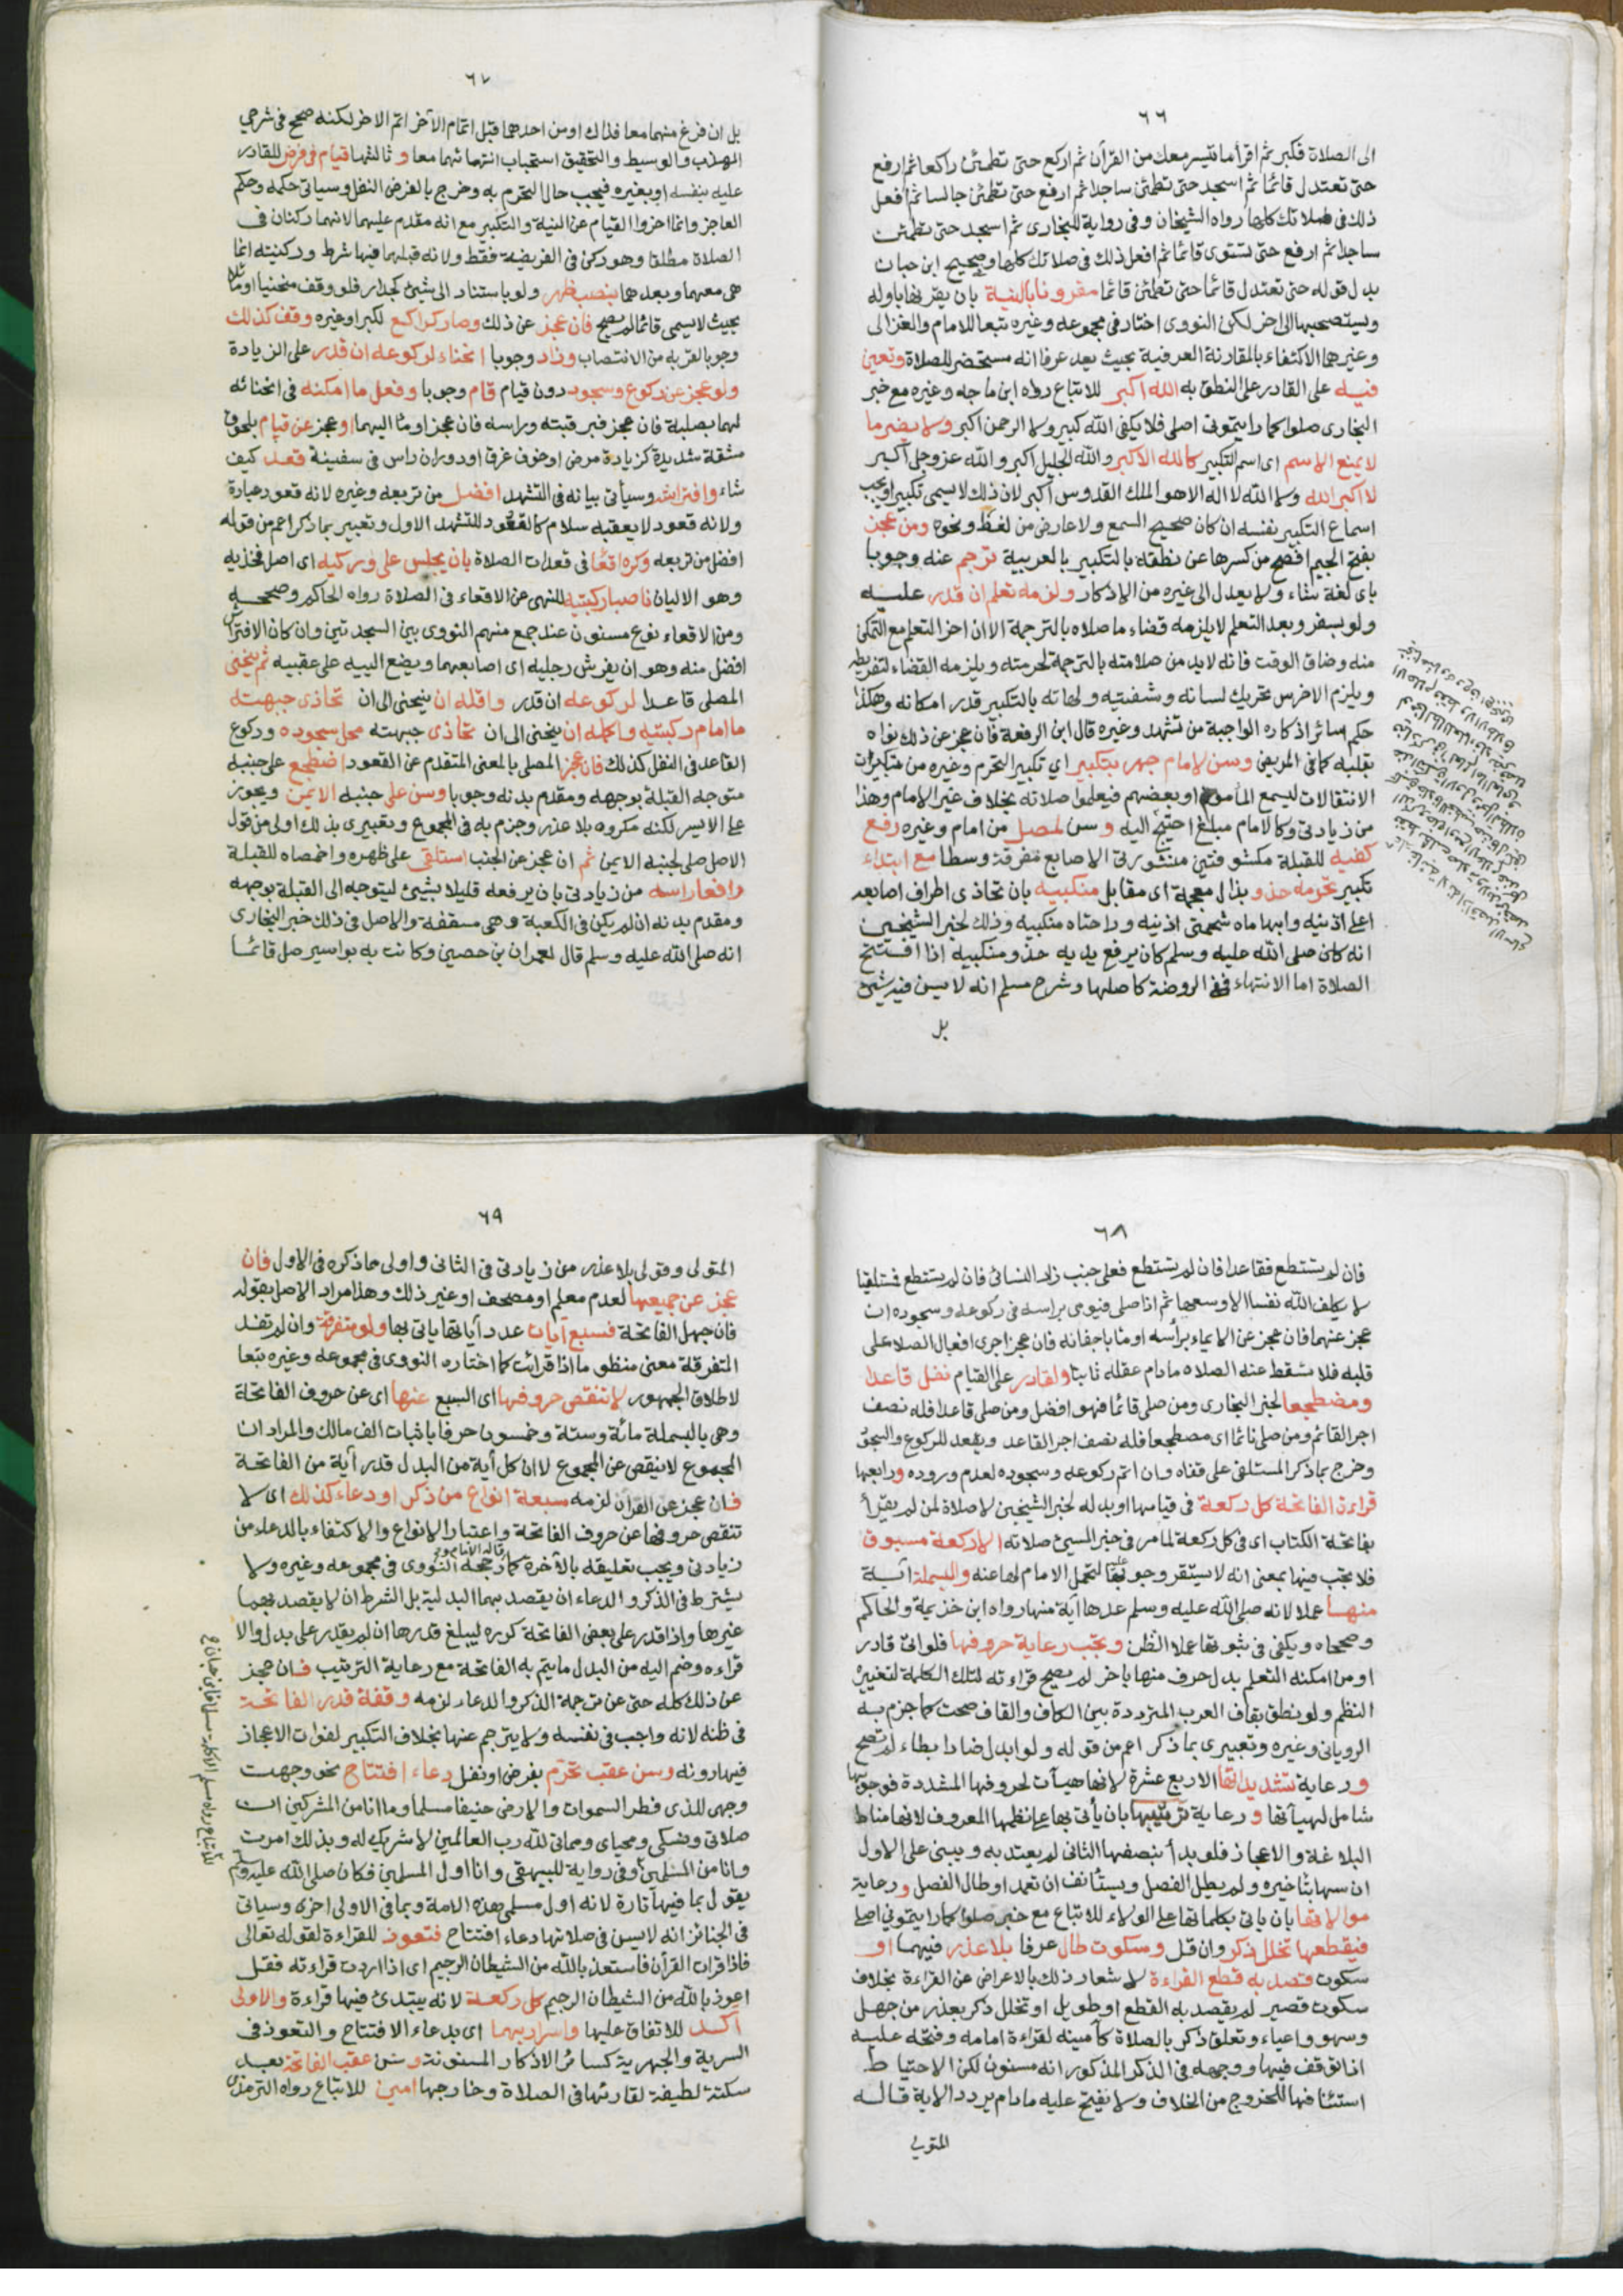 ٦٦
الى الصلاة فكبر ثم اقرأ ما تيسر معك من القرآن ثم اركع حتى تطمئن راكعا ثم ارفع
حتى تعتدل قائما ثم اسجد حتى تطمئن ساجدا ثم ارفع حتى تطمئن جالسا ثم افعل
ذلك في صلاتك كلها رواه الشيخان وفي رواية للبخارى ثم اسجد حتى تطمئن
ساجدا ثم ارفع حتى تستوى قائما ثم افعل ذلك في صلاتك كلها وصحيح ابن حبان
بدل قوله حتى تعتدل قائما حتى تطمئن قائما مقرونا بالنية بان يقرنها باوله
ويستصحبها الى اخر لكن النووى اختار في مجموعه وغيره تبعا للامام والغزالى
وغيرهما الاكتفاء بالمقارنة العرفية بحيث يعد عرفا انه مستحضر للصلاة وتعين
فيه على القادر على النطق به الله اكبر للاتباع رواه ابن ماجه وغيره مع خبر
البخارى صلوا كما رايتمونى اصلى فلا يكفى الله كبير ولا الرحمن اكبر ولا يضر ما
لا يمنع الاسم اى اسم التكبير كالله الاكبر والله الجليل اكبر والله عز وجل اكبر
لا اكبر الله ولا الله لا اله الا هو الملك القدوس اكبر لان ذلك لا يسمى تكبيرا ويجب
اسماع التكبير نفسه ان كان صحيح السمع ولا عارض من لغط ونحوه ومن عجز
بفتح الجيم افصح من كسرها عن نطقه بالتكبير بالعربية ترجم عنه وجوبا
باى لغة شاء ولا يعدل الى غيره من الاذكار ولزمه تعلم ان قدر عليه
ولو بسفر وبعد التعلم لا يلزمه قضاء ما صلاه بالترجمة الا ان اخر التعلم مع التمكن
منه وضاق الوقت فانه لا بد من صلاته بالترجمة لحرمته ويلزمه القضاء لتفريطه
ويلزم الاخرس تحريك لسانه وشفتيه ولهاته بالتكبير قدر امكانه وهكذا
حكم سائر اذكاره الواجبة من تشهد وغيره قال ابن الرفعة فان عجز عن ذلك نواه
بقلبه كما في المريض وسن لامام جهر بتكبير اي تكبير التحرم وغيره من تكبيرات
الانتقالات ليسمع المأموم او بعضهم فيعلموا صلاته بخلاف غير الامام وهذا
من زيادتى وكالامام مبلغ احتيج اليه وسن لمصل من امام وغيره رفع
كفيه للقبلة مكشوفتين منشورتى الاصابع مفرقة وسطا مع ابتداء
تكبير تحرمه حذو بذال معجمة اى مقابل منكبيه بان تحاذى اطراف اصابعه
اعلى اذنيه وابهاماه شحمتى اذنيه وراحتاه منكبيه وذلك لخبر الشيخين
انه كان صلى الله عليه وسلم كان يرفع يديه حذو منكبيه اذا افتتح
الصلاة اما الانتهاء ففى الروضة كاصلها وشرح مسلم انه لا يسن فيه شئ
بل
٦٧
بل ان فرغ منهما معا فذاك او من احدهما قبل اتمام الآخر اتم الاخر لكنه صحح فى شرحي
المهذب والوسيط والتحقيق استحباب انتهائهما معا وثالثها قيام فى فرض للقادر
عليه بنفسه او بغيره فيجب حال التحرم به وخرج بالفرض النفل وسياتى حكمه وحكم
العاجز وانما اخروا القيام عن النية والتكبير مع انه مقدم عليهما لانهما ركنان فى
الصلاة مطلقا وهو ركن فى الفريضة فقط ولانه قبلهما فيها شرط وركنيته انما
هى معهما وبعدهما بنصب ظهر ولو باستناد الى شئ كجدار فلو وقف منحنيا او مائلا
بحيث لا يسمى قائما لم يصح فان عجز عن ذلك وصار كراكع لكبر او غيره وقف كذلك
وجوبا لقربه من الانتصاب وزاد وجوبا انحناء لركوعه ان قدر على الزيادة
ولو عجز عن ركوع وسجود دون قيام قام وجوبا وفعل ما امكنه فى انحنائه
لهما بصلبه فان عجز فبرقبته وراسه فان عجز اومأ اليهما او عجز عن قيام بلحوق
مشقة شديدة كزيادة مرض او خوف غرق او دوران راس فى سفينة قعد كيف
شاء وافتراشه وسيأتى بيانه فى التشهد افضل من تربعه وغيره لانه قعود عبادة
ولانه قعود لا يعقبه سلام كالقعود للتشهد الاول وتعبيرى بما ذكر اعم من قوله
افضل من تربعه وكره اقعاء فى قعدات الصلاة بان يجلس على وركيه اى اصل فخذيه
وهو الاليان ناصبا ركبتيه للنهى عن الاقعاء فى الصلاة رواه الحاكم وصححه
ومن الاقعاء نوع مسنون عند جمع منهم النووى بين السجدتين وان كان الافتراش
افضل منه وهو ان يفرش رجليه اى اصابعهما ويضع الييه على عقبيه ثم ينحنى
المصلى قاعدا لركوعه ان قدر واقله ان ينحنى الى ان تحاذى جبهته
ما امام ركبتيه واكمله ان ينحنى الى ان تحاذى جبهته محل سجوده وركوع
القاعد فى النفل كذلك فان عجز المصلى بالمعنى المتقدم عن القعود اضطجع على جنبه
متوجه القبلة بوجهه ومقدم بدنه وجوبا وسن على جنبه الايمن ويجوز
على الايسر لكنه مكروه بلا عذر وجزم به فى المجموع وتعبيرى بذلك اولى من قول
الاصل صلى لجنبه الايمن ثم ان عجز عن الجنب استلقى على ظهره واخمصاه للقبلة
رافعا راسه من زيادتى بان يرفعه قليلا بشيئ ليتوجه الى القبلة بوجهه
ومقدم بدنه ان لم يكن فى الكعبة وهى مسقفة والاصل فى ذلك خبر البخارى
انه صلى الله عليه وسلم قال لعمران بن حصين وكانت به بواسير صل قائما
٦٨
فان لم تستطع فقاعدا فان لم تستطع فعلى جنب زاد النسائى فان لم تستطع فمستلقيا
لا يكلف الله نفسا الا وسعها ثم اذا صلى فيومى براسه فى ركوعه وسجوده ان
عجز عنهما فان عجز عن الايماء برأسه اومأ باجفانه فان عجز اجرى افعال الصلاة على
قلبه فلا تسقط عنه الصلاة ما دام عقله ثابتا ولقادر على القيام نفل قاعدا
ومضطجعا لخبر البخارى ومن صلى قائما فهو افضل ومن صلى قاعدا فله نصف
اجر القائم ومن صلى نائما اى مضطجعا فله نصف اجر القاعد ويقعد للركوع والسجود
وخرج بما ذكر المستلقى على قفاه وان اتم ركوعه وسجوده لعدم وروده ورابعها
قراءة الفاتحة كل ركعة فى قيامها او بدله لخبر الشيخين لا صلاة لمن لم يقرأ
بفاتحة الكتاب اى فى كل ركعة لما مر فى خبر المسيئ صلاته الا ركعة مسبوق
فلا تجب فيها بمعنى انه لا يستقر وجوبها عليه لتحمل الامام لها عنه والبسملة آية
منها عملا لانه صلى الله عليه وسلم عدها آية منها رواه ابن خزيمة والحاكم
وصححاه ويكفى فى ثبوتها عملا الظن وتجب رعاية حروفها فلو اتى قادر
او من امكنه التعلم بدل حرف منها باخر لم يصح قراءته لتلك الكلمة لتغييره
النظم ولو نطق بقاف العرب المترددة بين الكاف والقاف صحت كما جزم به
الرويانى وغيره وتعبيرى بما ذكر اعم من قوله ولو ابدل ضادا بظاء لم تصح
ورعاية تشديداتها الاربع عشرة لانها هيآت لحروفها المشددة فوجوبها
شامل لهيآتها ورعاية ترتيبها بان يأتى بها على نظمها المعروف لانها مناط
البلاغة والاعجاز فلو بدأ بنصفها الثانى لم يعتد به ويبنى على الاول
ان سها بتاخيره ولم يطل الفصل ويستأنف ان تعمد او طال الفصل ورعاية
موالاتها بان ياتى بكلماتها على الولاء للاتباع مع خبر صلوا كما رايتمونى اصلى
فيقطعها تخلل ذكر وان قل وسكوت طال عرفا بلا عذر فيهما او
سكوت قصد به قطع القراءة لاشعار ذلك بالاعراض عن القراءة بخلاف
سكوت قصير لم يقصد به القطع او طويل او تخلل ذكر بعذر من جهل
وسهو واعياء وتعلق ذكر بالصلاة كتأمينه لقراءة امامه وفتحه عليه
اذا توقف فيها ووجهه فى الذكر المذكور انه مسنون لكن الاحتياط
استئنافها للخروج من الخلاف ولا يفتح عليه ما دام يردد الاية قاله
المتولى
٦٩
المتولى وقولى بلا عذر من زيادتى فى الثانى واولى مما ذكره فى الاول فان
عجز عن جميعها لعدم معلم او مصحف او غير ذلك وهذا مراد الاصل بقوله
فان جهل الفاتحة فسبع آيات عدد آياتها ياتى بها ولو متفرقة وان لم تفد
المتفرقة معنى منظوما اذا قرات كما اختاره النووى فى مجموعه وغيره تبعا
لاطلاق الجمهور لا تنقص حروفها اى السبع عنها اى عن حروف الفاتحة
وهى بالبسملة مائة وستة وخمسون حرفا باثبات الف مالك والمراد ان
المجموع لا ينقص عن المجموع لا ان كل آية من البدل قدر آية من الفاتحة
فان عجز عن القرآن لزمه سبعة انواع من ذكر او دعاء كذلك اى لا
تنقص حروفها عن حروف الفاتحة واعتبار الانواع والاكتفاء بالدعاء من
زيادتى ويجب تعليقه بالآخرة كما رجحه النووى فى مجموعه وغيره ولا
قاله الامام و
يشترط فى الذكر والدعاء ان يقصد بهما البدلية بل الشرط ان لا يقصد بهما
غيرها واذا قدر على بعض الفاتحة كرره ليبلغ قدرها ان لم يقدر على بدل والا
قراءه وضم اليه من البدل ما يتم به الفاتحة مع رعاية الترتيب فان عجز
عن ذلك كله حتى عن ترجمة الذكر والدعاء لزمه وقفة قدر الفاتحة
فى ظنه لانه واجب فى نفسه ولا يترجم عنها بخلاف التكبير لفوات الاعجاز
فيها دونه وسن عقب تحرم بفرض او نفل دعاء افتتاح نحو وجهت
وجهى للذى فطر السموات والارض حنيفا مسلما وما انا من المشركين ان
صلاتى ونسكى ومحياى ومماتى لله رب العالمين لا شريك له وبذلك امرت
وانا من المسلمين وفى رواية للبيهقى وانا اول المسلمين فكان صلى الله عليه وسلم
يقول بما فيها تارة لانه اول مسلمى هذه الامة وبما فى الاولى اخرى وسياتى
فى الجنائز انه لا يسن فى صلاتها دعاء افتتاح فتعوذ للقراءة لقوله تعالى
فاذا قرات القرآن فاستعذ بالله من الشيطان الرجيم اى اذا اردت قراءته فقل
اعوذ بالله من الشيطان الرجيم كل ركعة لانه يبتدئ فيها قراءة والاولى
آكد للاتفاق عليها واسرار بهما اى بدعاء الافتتاح والتعوذ فى
السرية والجهرية كسائر الاذكار المسنونة وسن عقب الفاتحة بعد
سكتة لطيفة لقارئها فى الصلاة وخارجها امين للاتباع رواه الترمذى
للاتباع رواه مسلم الا كلمة مسلما فابن حبان